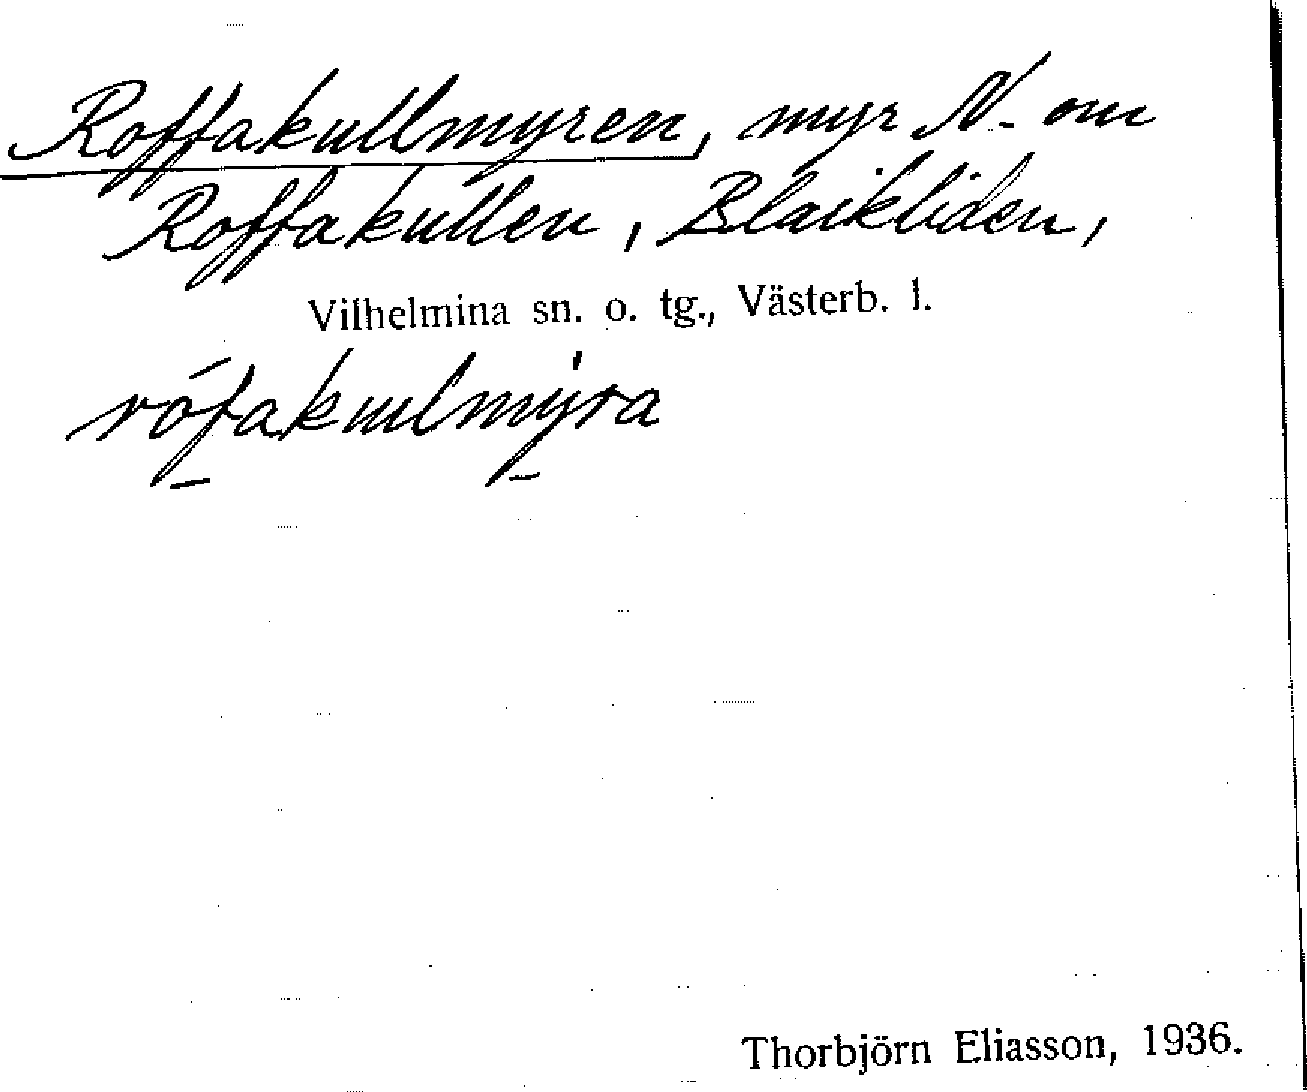 Roffakullmyren, myr N. om
Roffakullen, Blaikliden,
Vilhelmina sn. o. tg., Västerb. l.
rófakulmýra
Thorbjörn Eliasson, 1936.